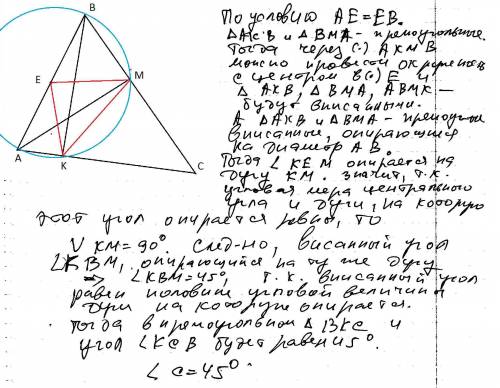 B
E
M
A
K
C
По условию AE=EB.
ΔAKB и ΔBMA - прямоугольные.
Тогда через (·) AKMB
можно провести окружность
с центром в (·) E и
ΔAKB, ΔBMA, ΔBMK -
будут вписанными.
А ΔAKB и ΔBMA - прямоуг
вписанные, опирающиеся
на диаметр AB.
Тогда ∠KEM опирается на
дугу KM. Значит, т.к.
угловая мера центрального
угла и дуги, на которую
этот угол опирается равны, то
∪ KM=90°. След-но, висанный угол
∠KBM, опирающийся на ту же дугу
⇒ ∠KBM=45°, т.к. вписанный угол
равен половине угловой величины
дуги на которую опирается.
Тогда в прямоугольном ΔBKC и
угол ∠KCB будет равен 45°.
∠C=45°